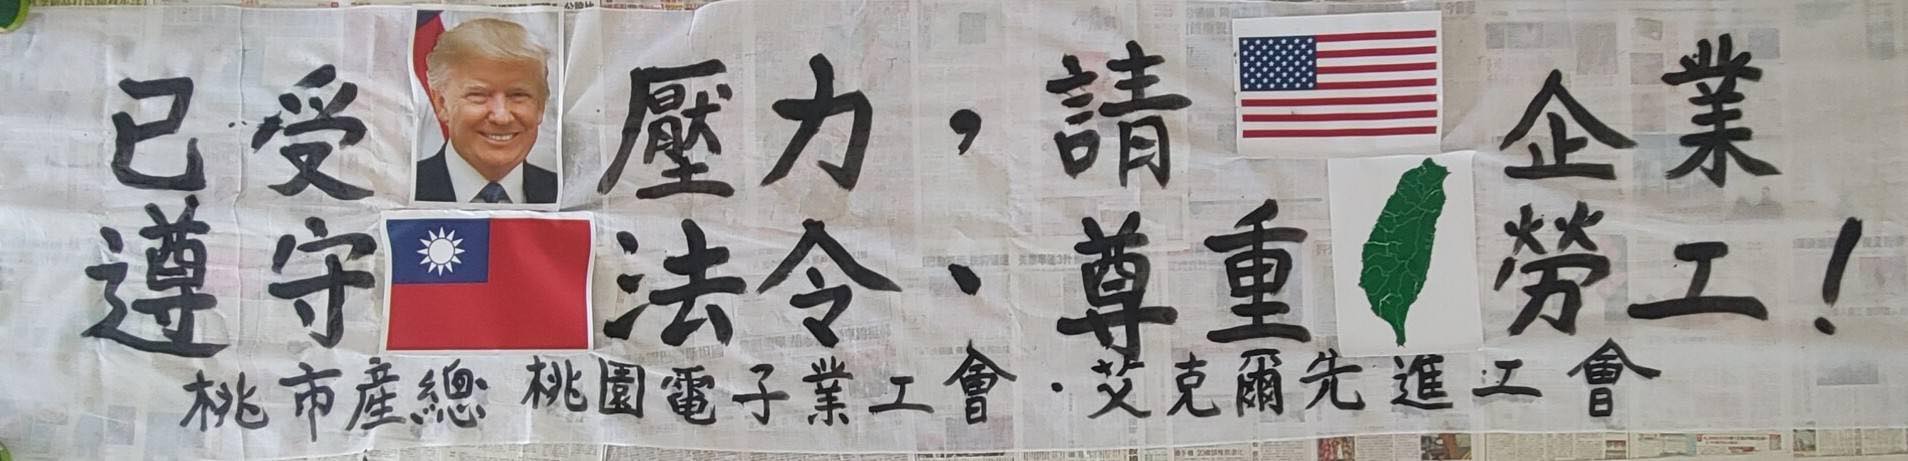 已受壓力，請企業
遵守法令、尊重勞工！
桃市產總 桃園電子業工會·艾克爾先進工會